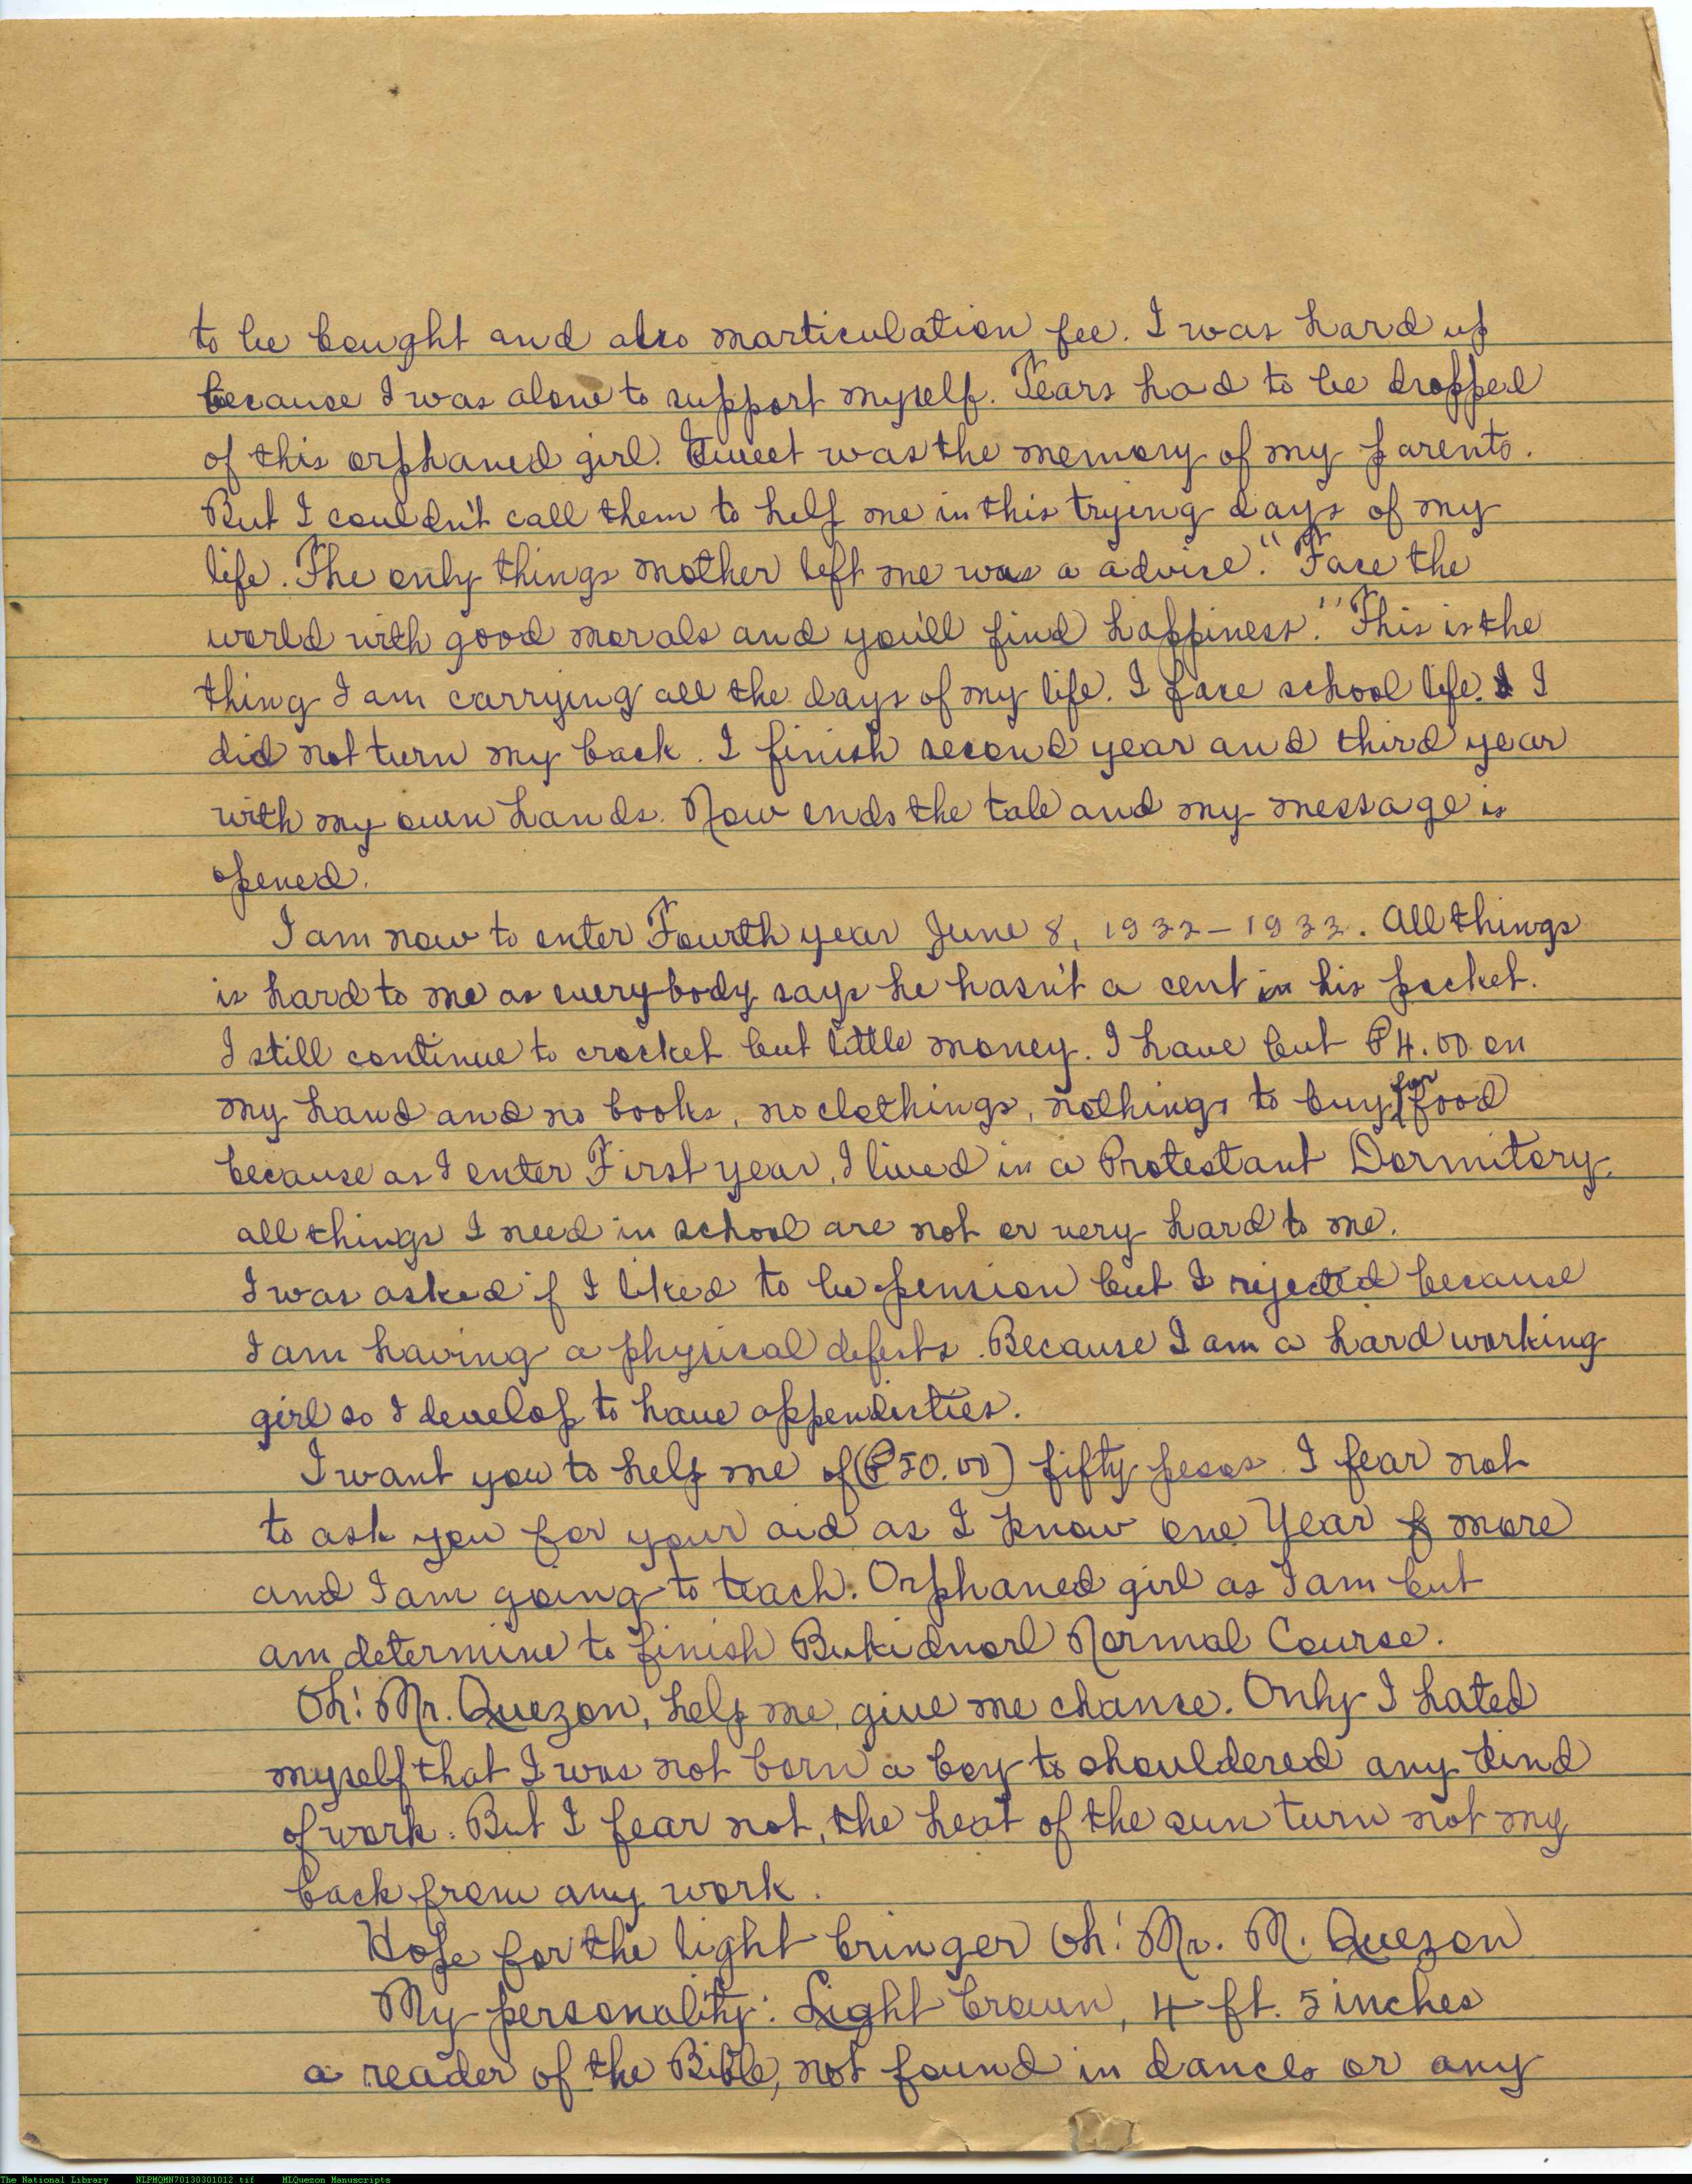 to be bought and also marticulation fee. I was hard up
because I was alone to support myself. Tears had to be dropped
of this orphaned girl. Sweet was the memory of my parents.
But I couldn't call them to help me in this trying days of my
life. The only things mother left me was a advise." Face the
world with good morals and you'll find happiness." This is the
thing I am carrying all the days of my life. I face school life. I
did not turn my back. I finish second year and third year
with my own hands. Now ends the tale and my message is
opened.
I am now to enter Fourth year June 8, 1932-1933. All things
is hard to me as everybody says he hasn't a cent in his pocket.
I still continue to crocket but little money. I have but ₱4.00 on
my hand and no books, no clothings, nothings to buy for food
because as I enter First year, I lived in a Protestant Dormitory.
all things I need in school are not or very hard to me.
I was asked if I liked to be pension but I rejected because
I am having a physical defects. Because I am a hard working
girl so I develop to have appendisties.
I want you to help me of (₱50.00) fifty pesos. I fear not
to ask you for your aid as I know one Year more
and I am going to teach. Orphaned girl as I am but
am determine to finish Bukidnorl Normal Course.
Oh! Mr. Quezon, help me, give me chance. Only I hated
myself that I was not born a boy to shouldered any kind
of work. But I fear not, the heat of the sun turn not my
back from any work.
Hope for the light bringer Oh! Mr. M. Quezon
My personality: Light brown, 4 ft. 5 inches
a reader of the Bible, not found in dances or any
The National Library NLPMQMN70130301012.tif MLQuezon Manuscripts